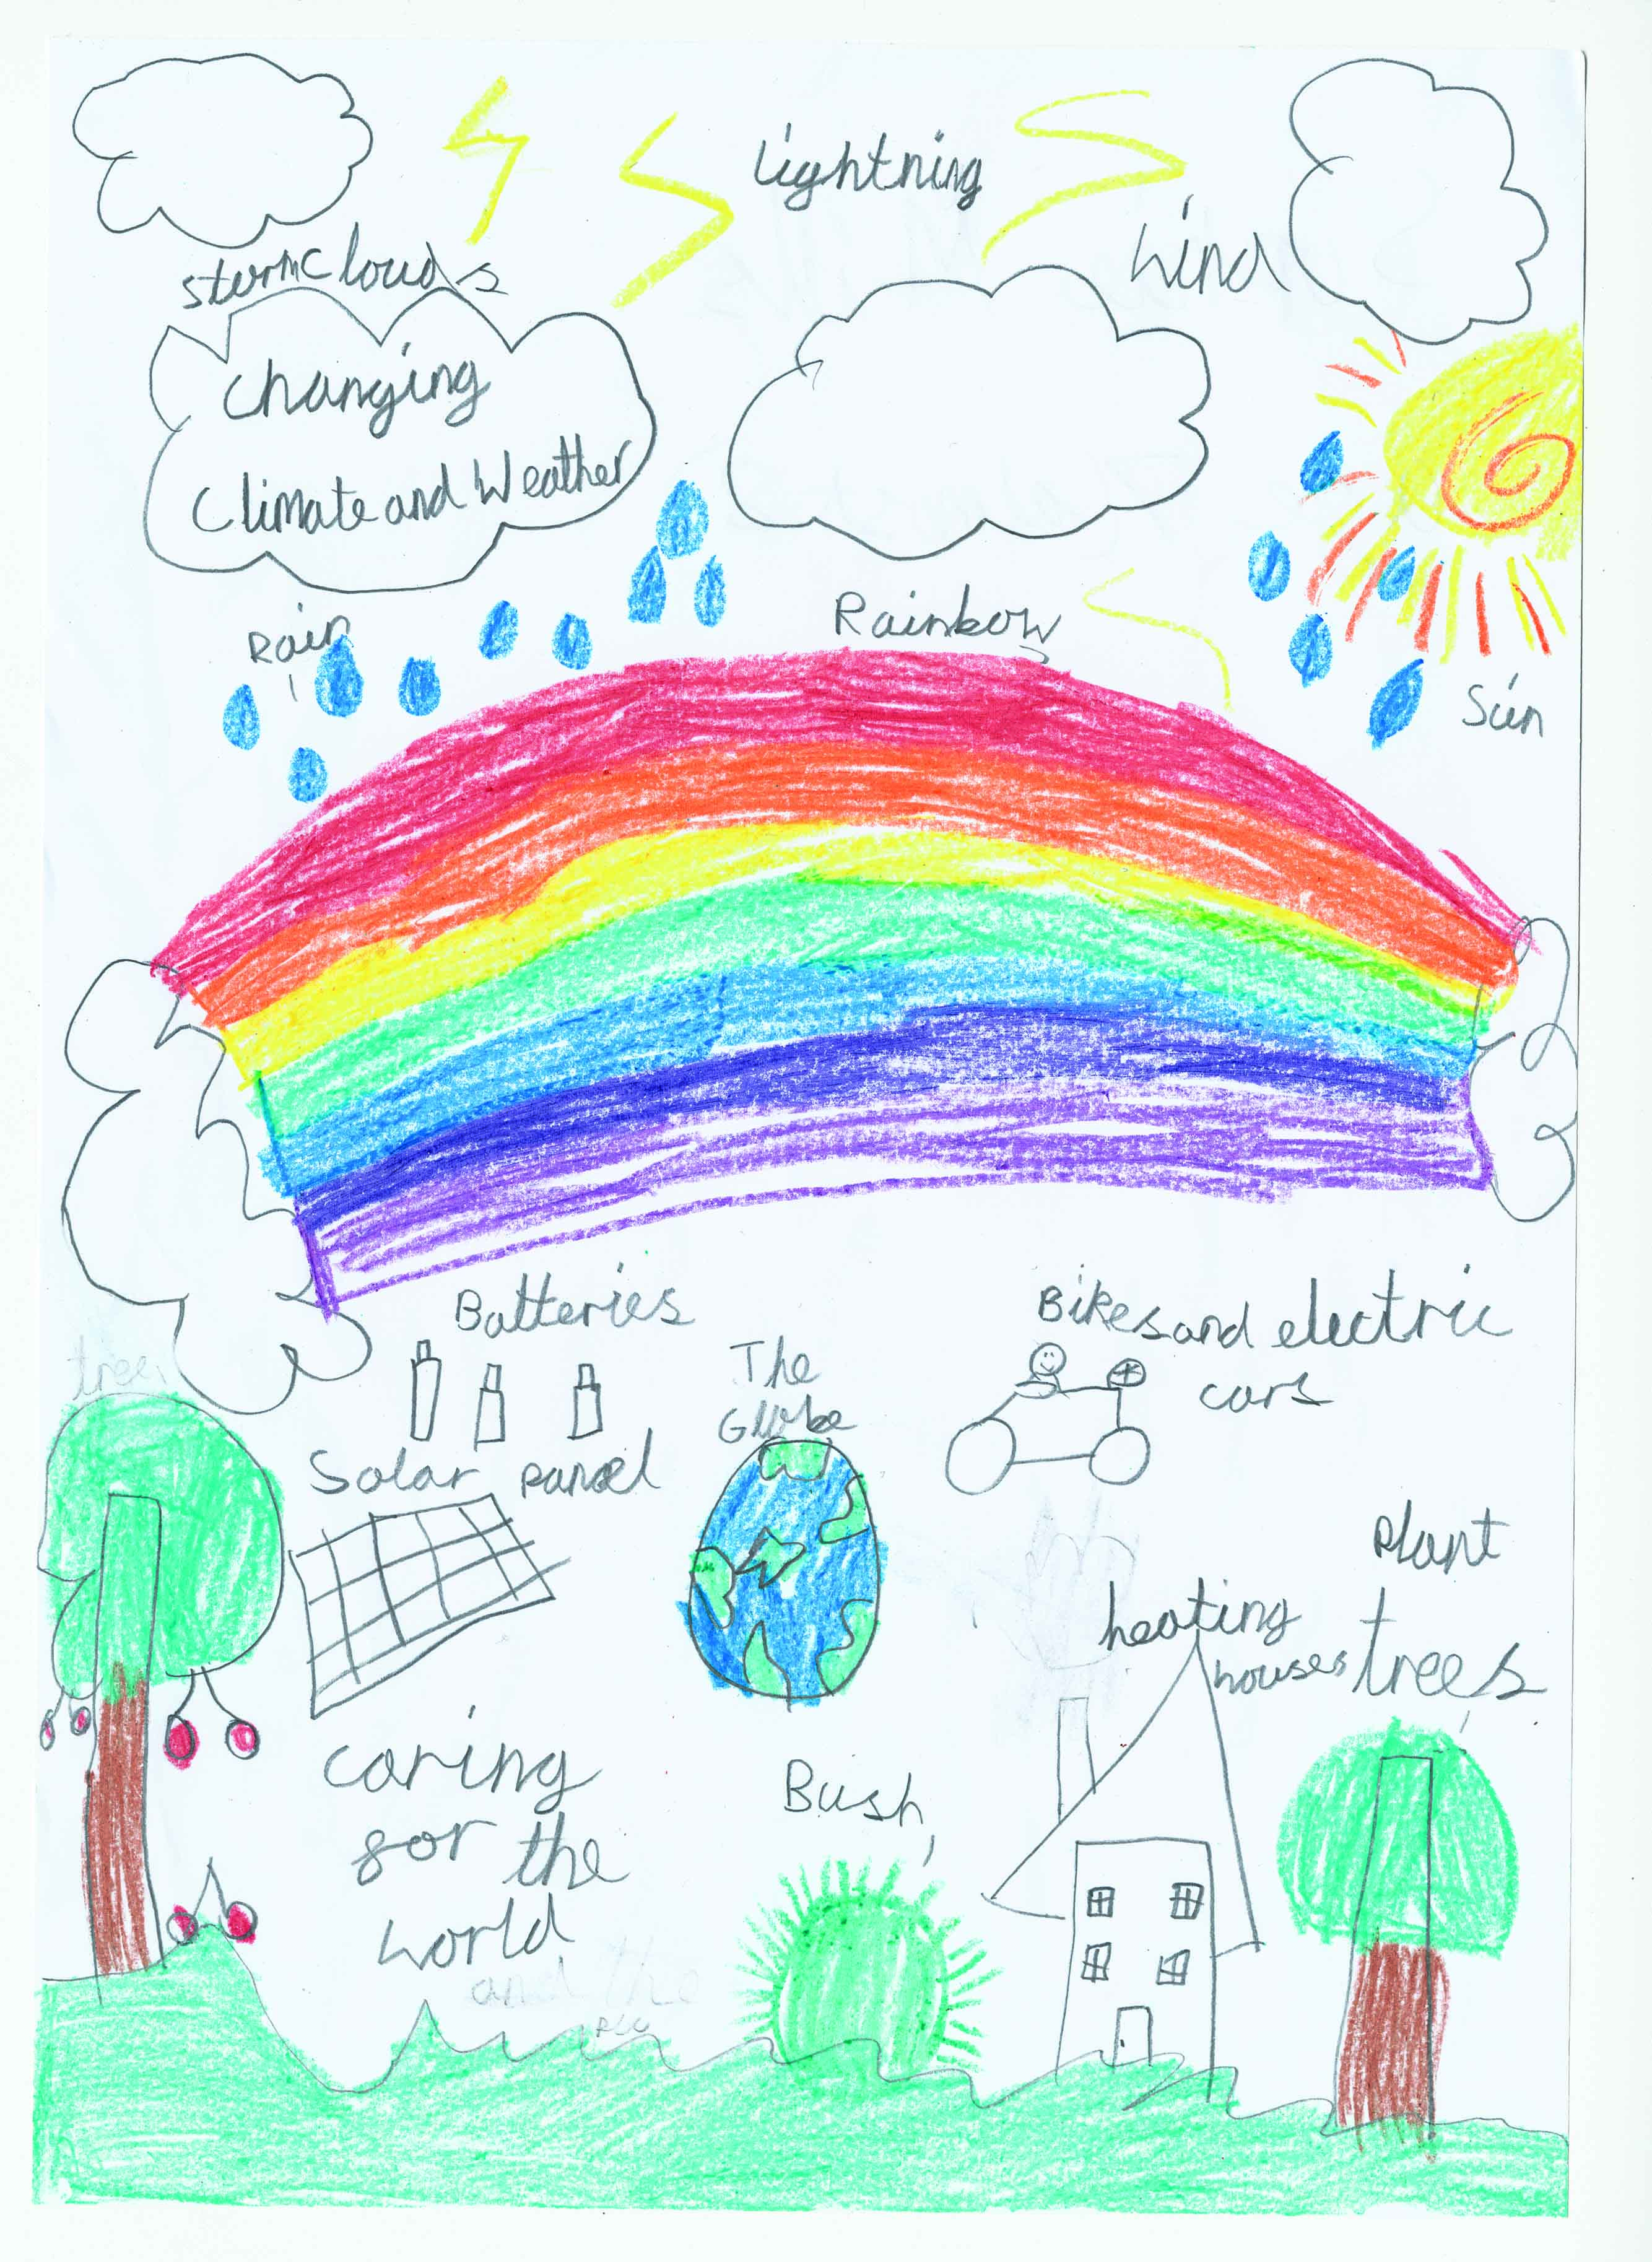 lightning
Wind
storm clouds
Changing
Climate and Weather
Rain
Rainbow
Sun
Batteries
Bikes and electric
cars
The
Globe
tree
Solar panel
Plant
trees
heating
houses
caring
for the
world
and the
Bush